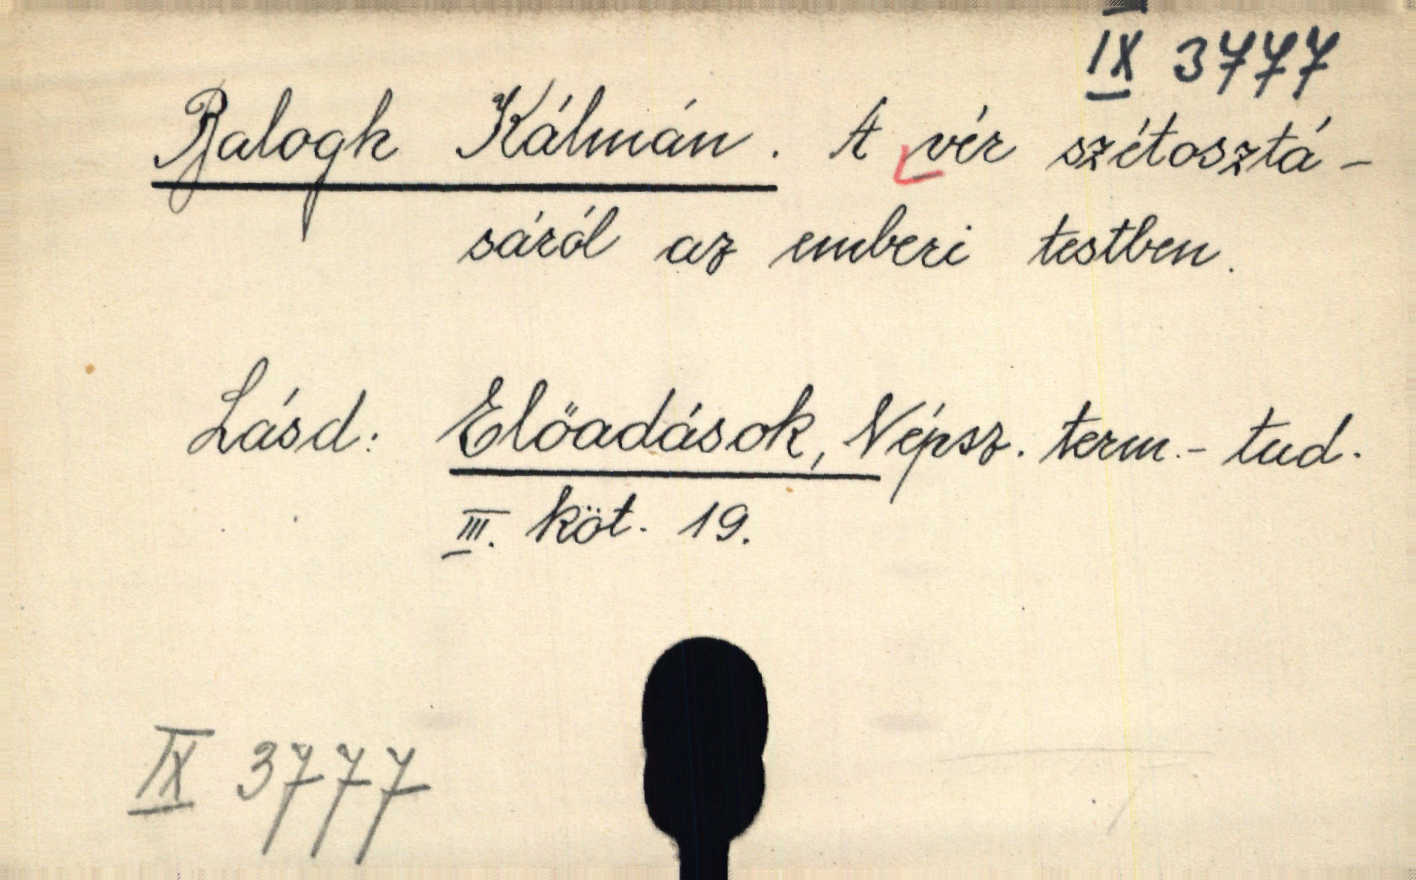 IX 3777
Balogh Kálmán. A vér szétosztá-
sáról az emberi testben.
Lásd: Előadások, Népsz. term.-tud.
III. köt. 19.
IX 3777